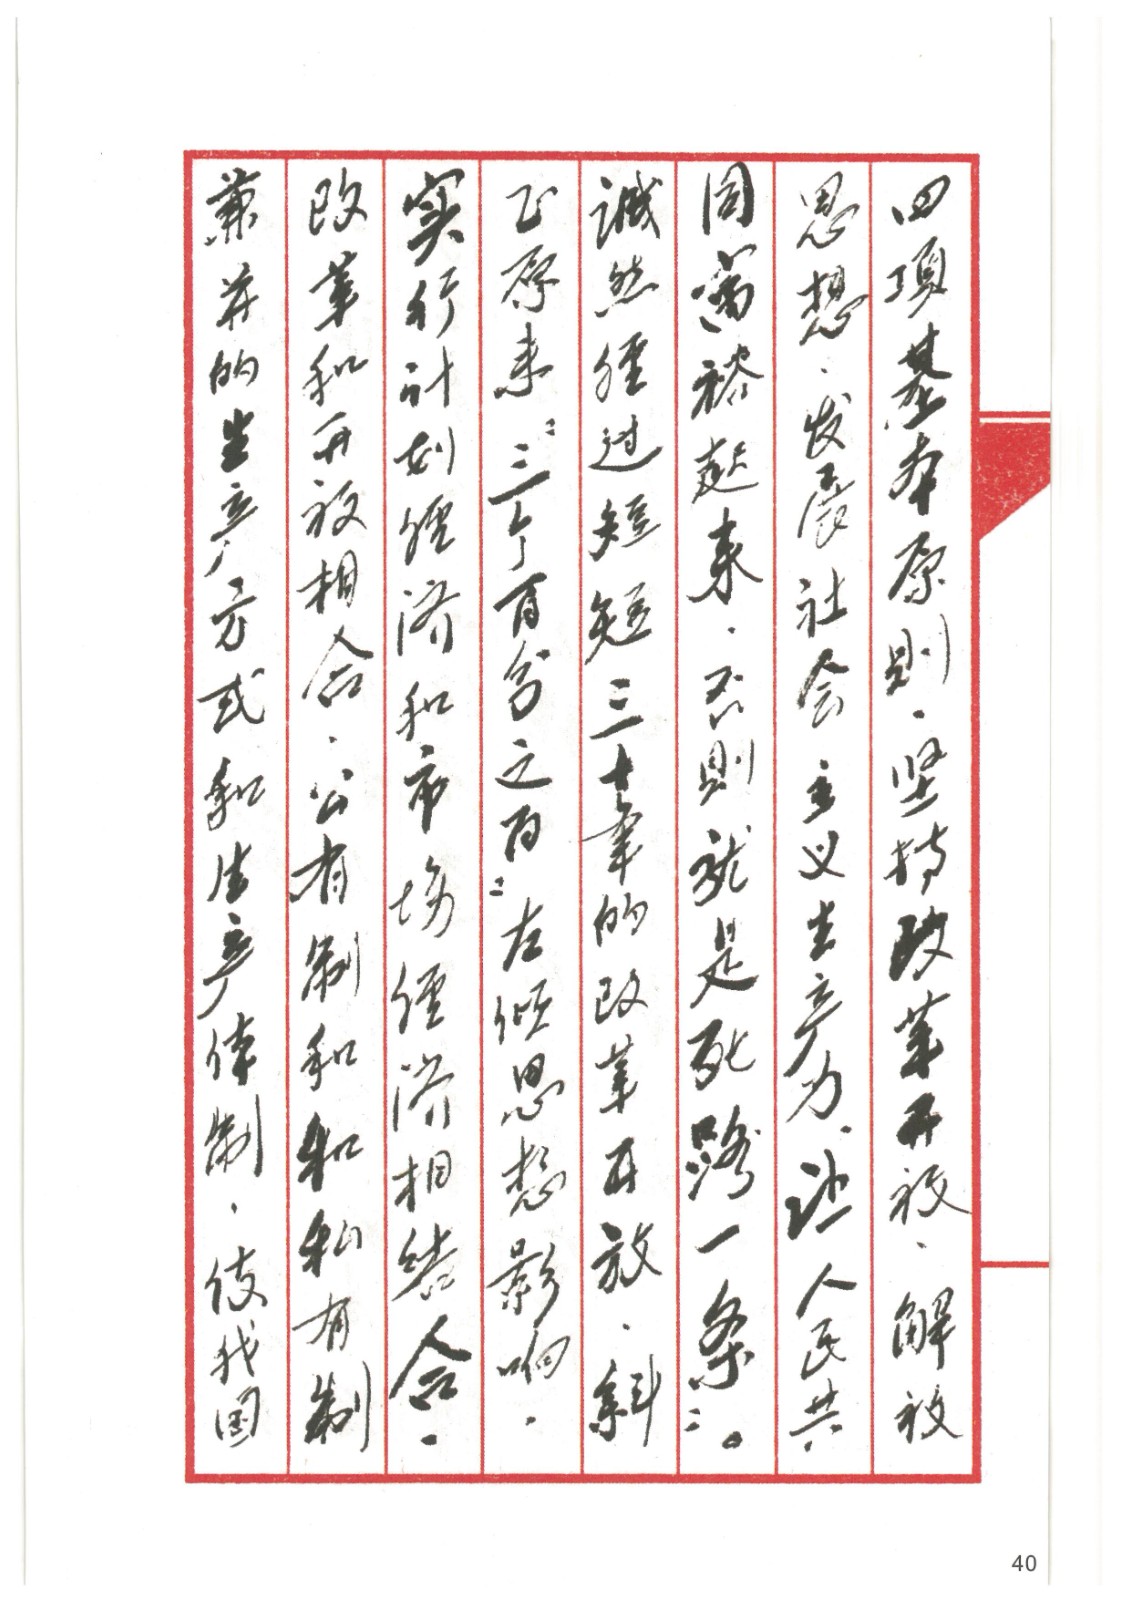 四项基本原则、坚持改革开放、解放
思想、发展社会主义生产力、让人民共
同富裕起来、否则就是死路一条”。
诚然经过短短三十年的改革开放、纠
正原来“三个百分之百”左倾思想影响、
实行计划经济和市场经济相结合、
改革和开放相合、公有制和和私有制
兼并的生产方式和生产体制、使我国
40